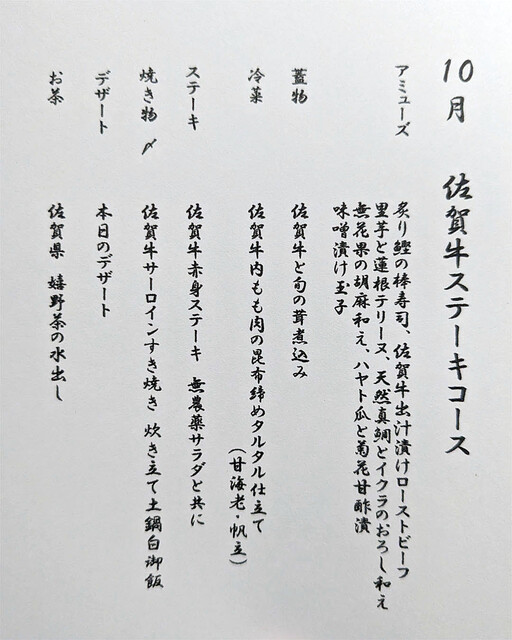 10月　佐賀牛ステーキコース
アミューズ
炙り鰹の棒寿司、佐賀牛出汁漬けローストビーフ
里芋と蓮根テリーヌ、天然真鯛とイクラのおろし和え
無花果の胡麻和え、ハヤト瓜と菊花甘酢漬
味噌漬け玉子
蓋物　佐賀牛と旬の茸煮込み
冷菜　佐賀牛内もも肉の昆布締めタルタル仕立て
（甘海老・帆立）
ステーキ　佐賀牛赤身ステーキ　無農薬サラダと共に
焼き物　〆　佐賀牛サーロインすき焼き　炊き立て土鍋白御飯
デザート　本日のデザート
お茶　佐賀県　嬉野茶の水出し